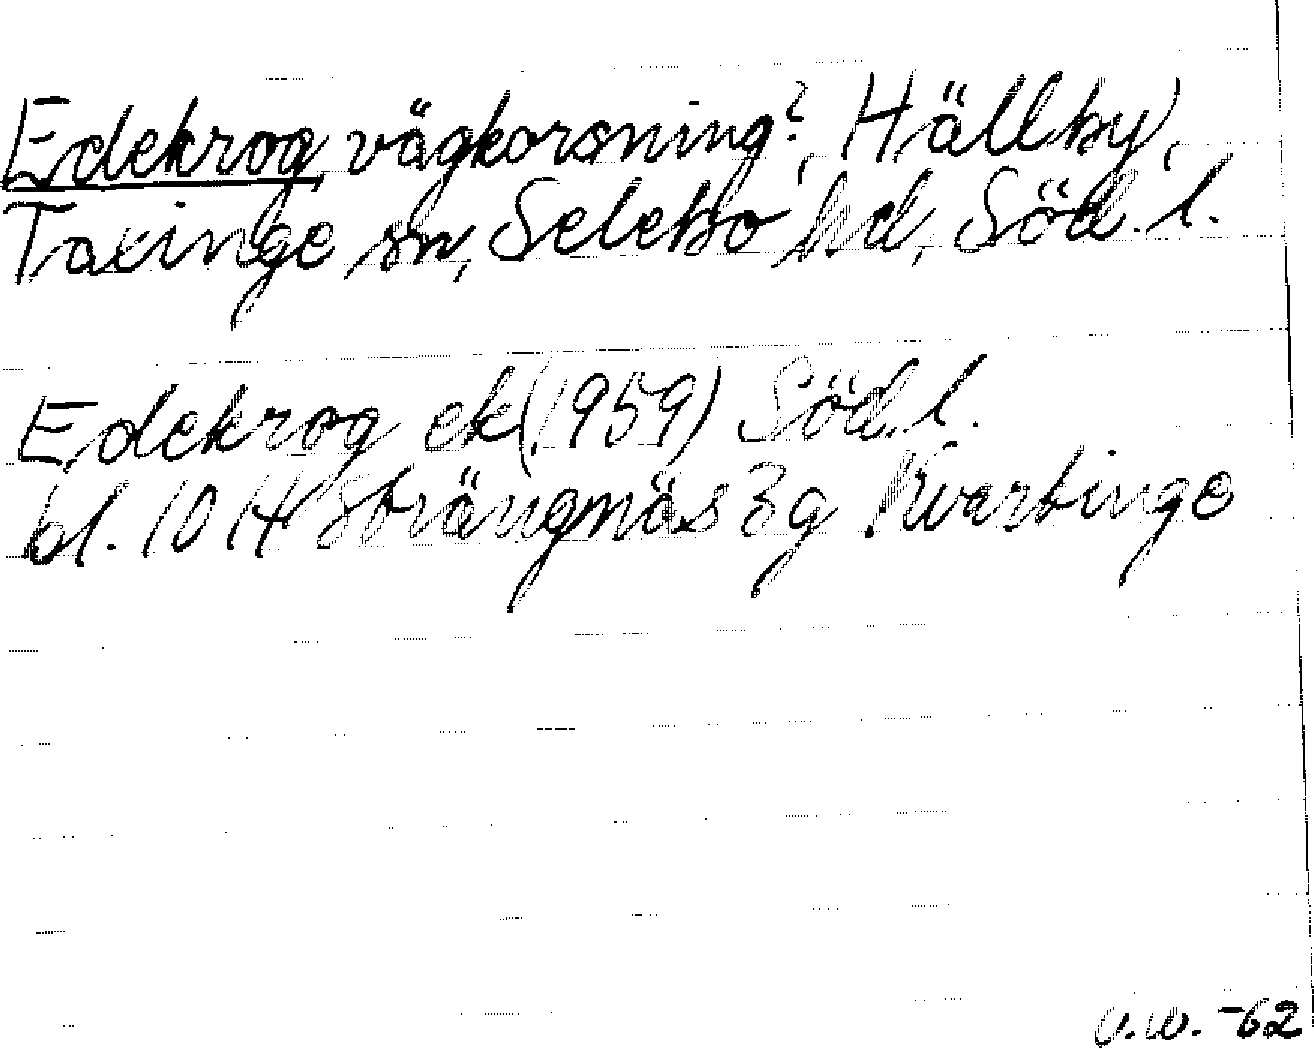 Edekrog, vägkorsning?, Hällby,
Taxinge sn, Selebo hd, Söd. l.
Edekrog ek (1959) Söd. l.
bl. 10 H Strängnäs 3g Kvartinge
U.W. -62